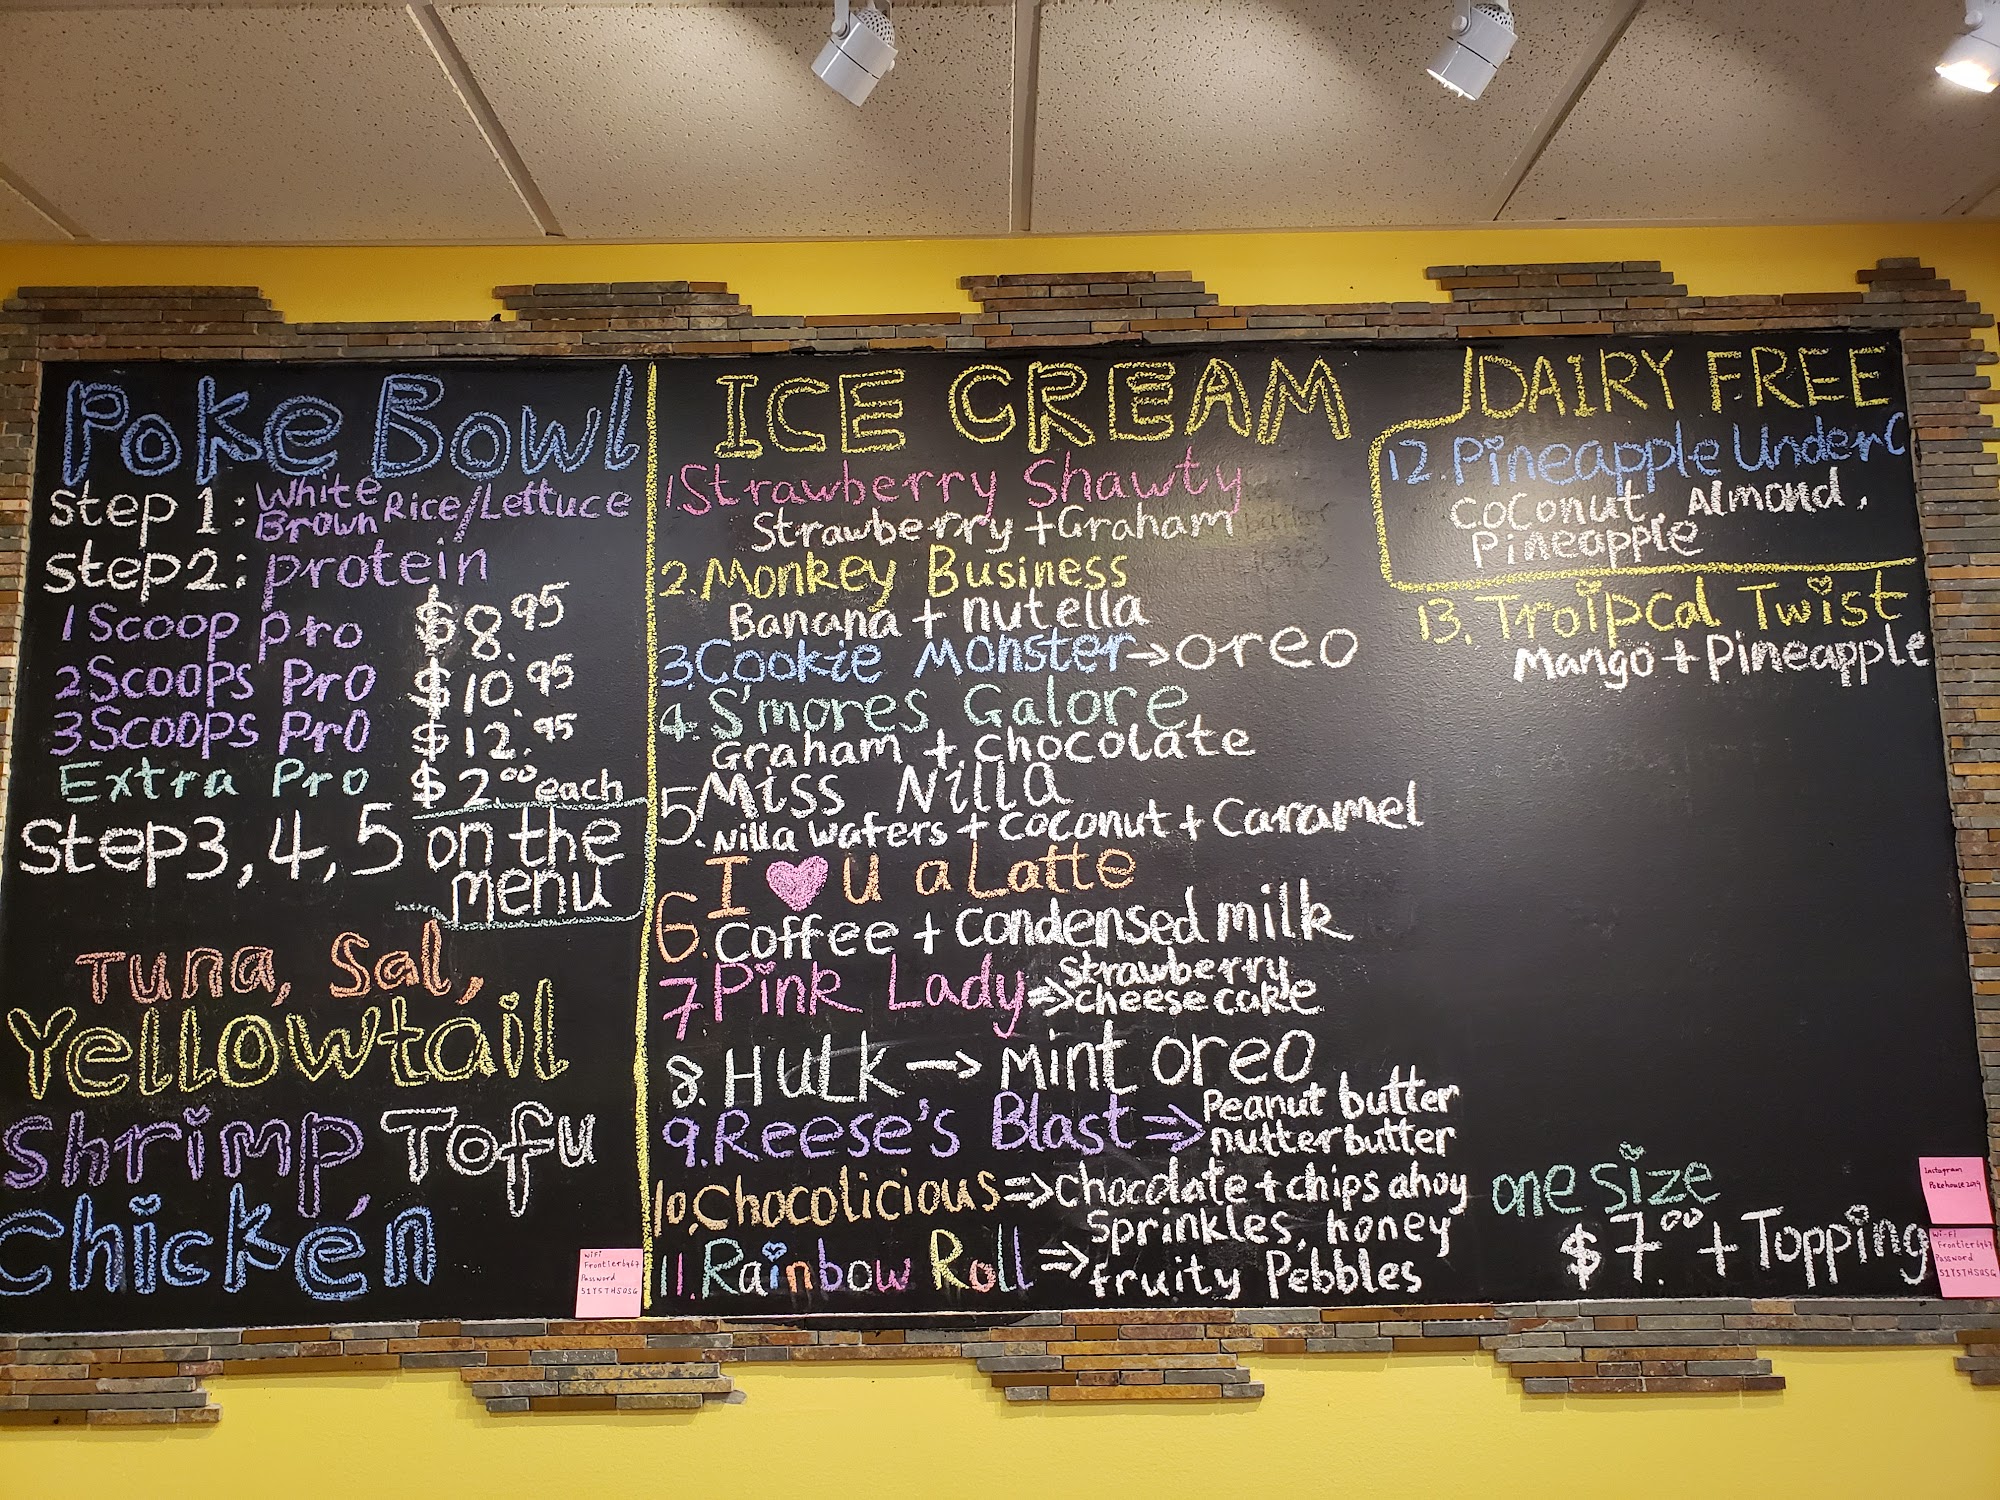 Poke Bowl
Step 1: White Brown Rice/Lettuce
Step 2: protein
1 Scoop pro $8.95
2 Scoops Pro $10.95
3 Scoops Pro $12.95
Extra Pro $2.00 each
Step 3, 4, 5 on the
menu
Tuna, Sal,
Yellowtail
Shrimp, Tofu
Chicken
WiFi
Password
ICE CREAM
1. Strawberry Shawty
Strawberry + Graham
2. Monkey Business
Banana + nutella
3. Cookie Monster → oreo
4. S'mores Galore
Graham + chocolate
5. Miss Nilla
Nilla wafers + coconut + Caramel
6. I ♥ U a Latte
Coffee + Condensed milk
7 Pink Lady ⇒ Strawberry
cheese cake
8. Hulk → Mint oreo
9. Reese's Blast ⇒ Peanut butter
nutter butter
10. Chocolicious ⇒ chocolate + chips ahoy
11. Rainbow Roll ⇒ Sprinkles, honey
fruity Pebbles
DAIRY FREE
12. Pineapple Under C
Coconut, Almond,
Pineapple
13. Troipcal Twist
Mango + Pineapple
one size
$7.00 + Topping
Instagram
Pokehouse2019
Wi-Fi
Password